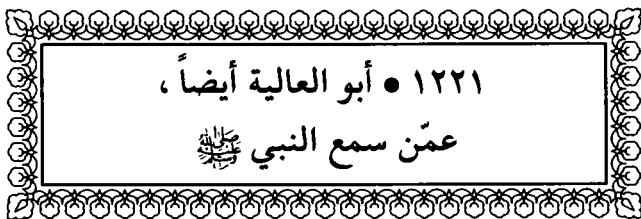 ١٢٢١ • أبو العالية أيضاً ،
عمّن سمع النبي ﷺ